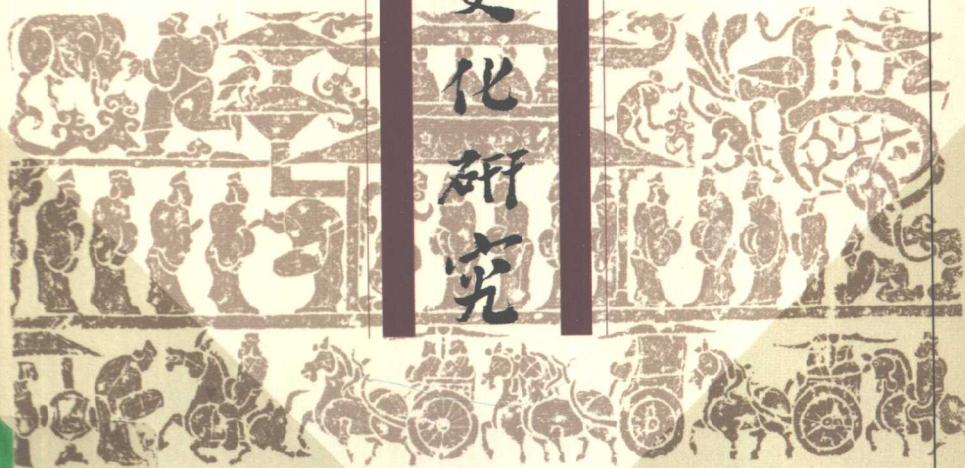 化研究